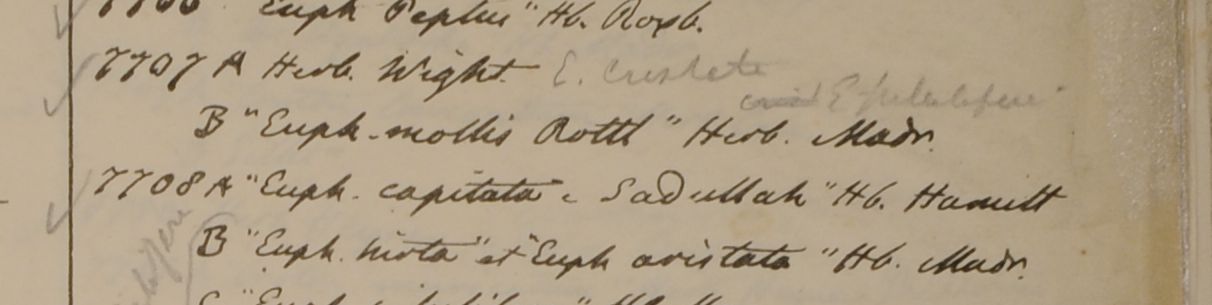 7706 "Euph Peplus" Hb. Roxb.
7707 A Herb. Wight E. cristata
B "Euph. mollis Rottl" Herb. Madr.
7708 A "Euph. capitata e Sadullah" Hb. Hamilt
B "Euph. hirta" et "Euph aristata" Hb. Madr.
C "Euph.